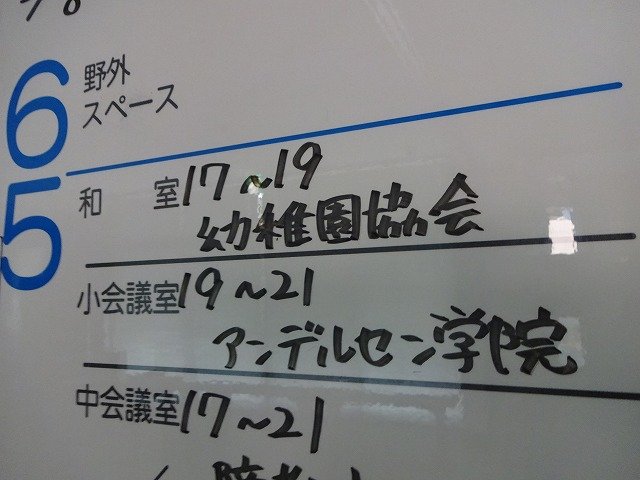 6 野外
スペース
5 和 室 17~19
幼稚園協会
小会議室 19~21
アンデルセン学院
中会議室 17~21